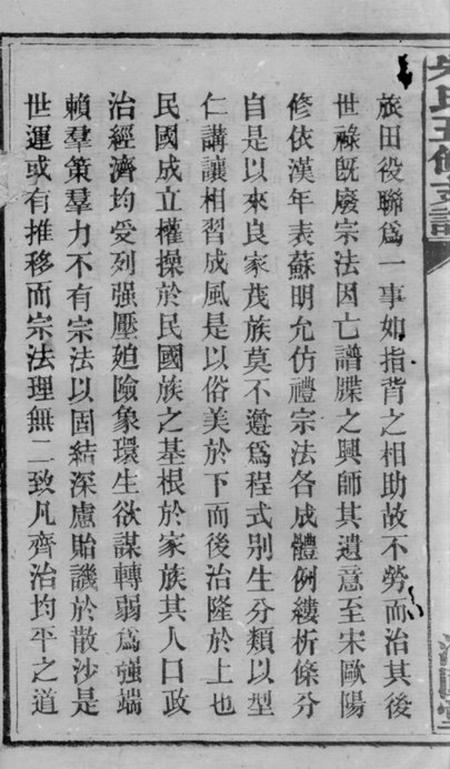 旅田役聯爲一事如指背之相助故不勞而治其後
世祿既廢宗法因亡譜牒之興師其遺意至宋歐陽
修依漢年表蘇明允仿禮宗法各成體例縷析條分
自是以來良家茂族莫不遵爲程式别生分類以型
仁講讓相習成風是以俗美於下而後治隆於上也
民國成立權操於民國族之基根於家族其人口政
治經濟均受列强壓廹險象環生欲謀轉弱爲强端
賴羣策羣力不有宗法以固結深慮貽譏於散沙是
世運或有推移而宗法理無二致凡齊治均平之道